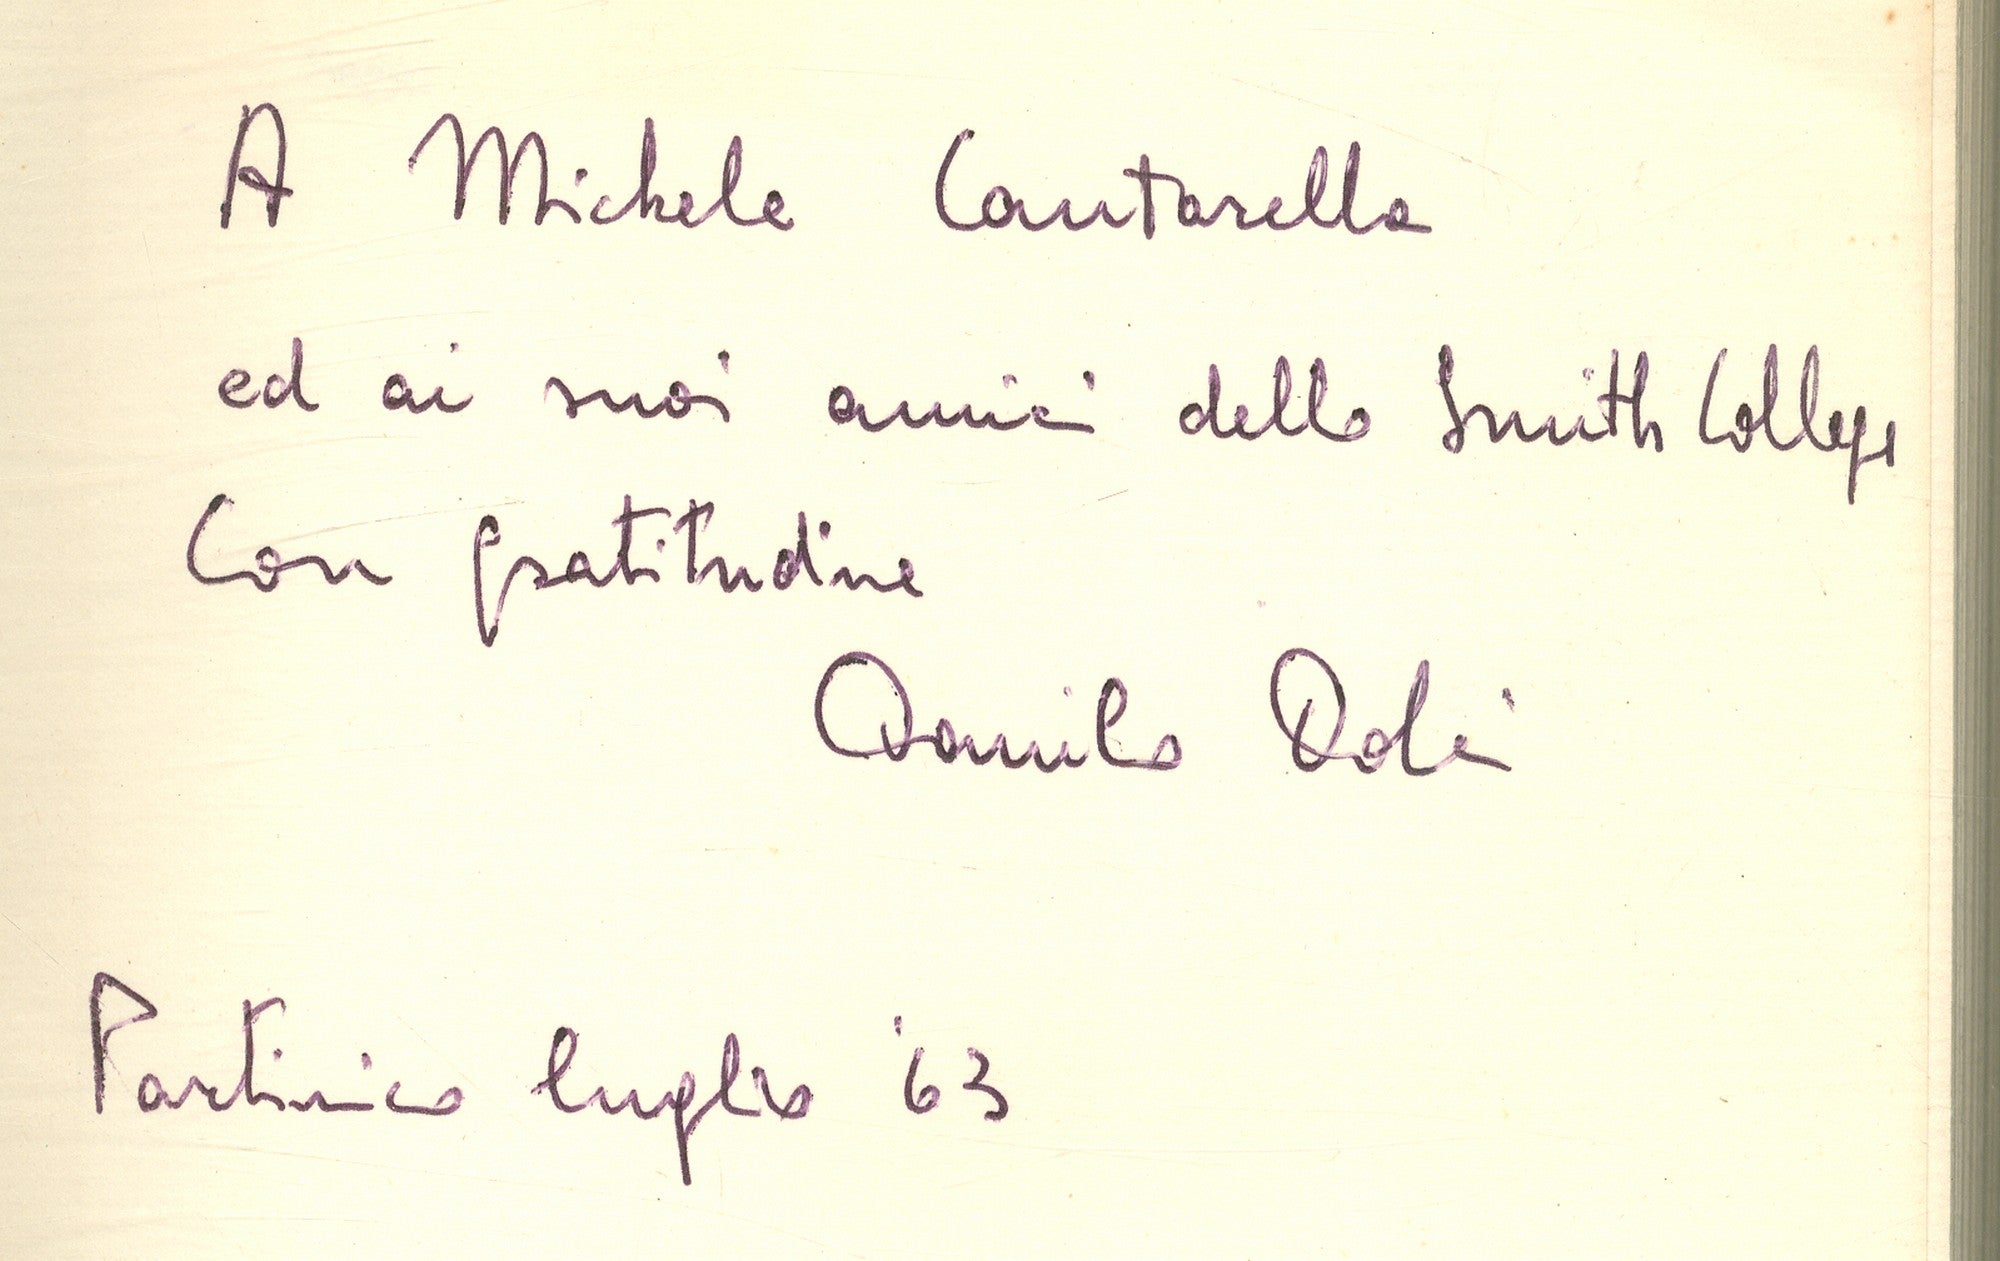 A Michele Cantarella
ed ai suoi amici dello Smith College
Con gratitudine
Danilo Dolci
Partinico luglio '63